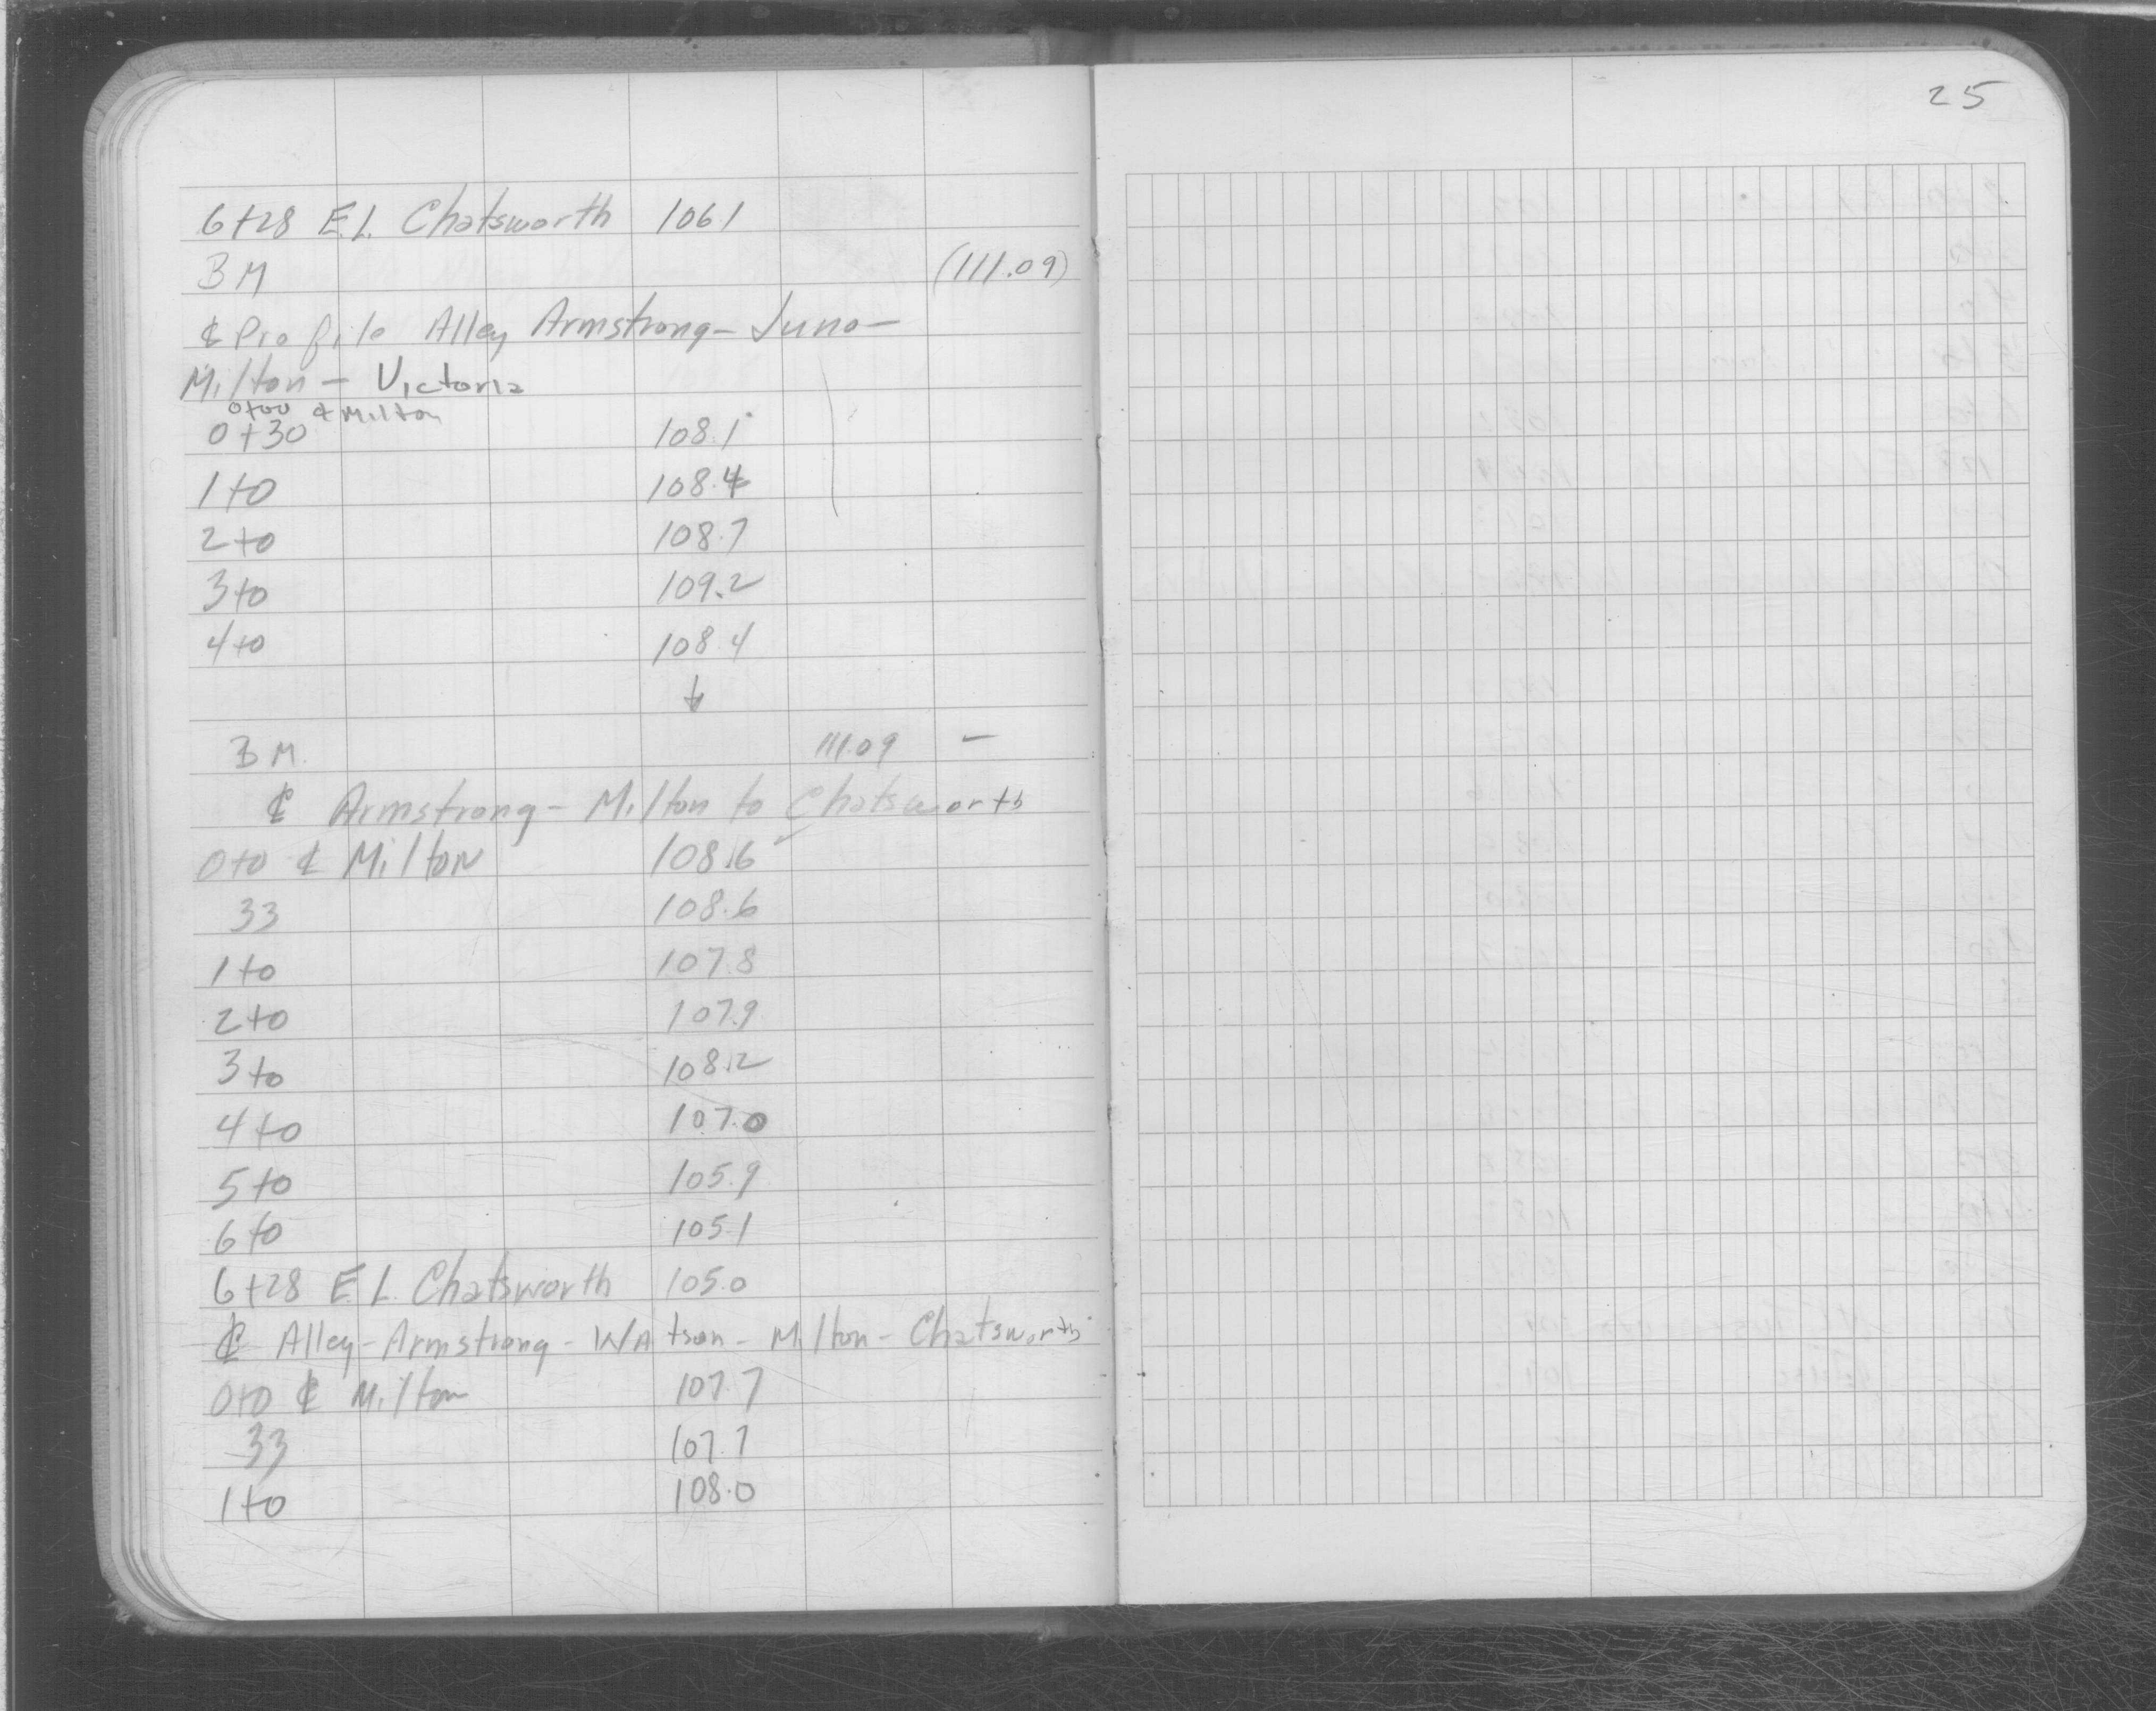 25
6+28 E.L. Chatsworth 106.1
BM (111.09)
℄ Profile Alley Armstrong - Juno -
Milton - Victoria
0+00 ℄ Milton
0+30 108.1
1+0 108.4
2+0 108.7
3+0 109.2
4+0 108.4
B M. 111.09 -
℄ Armstrong - Milton to Chatsworth
0+0 ℄ Milton 108.6
33 108.6
1+0 107.8
2+0 107.9
3+0 108.2
4+0 107.0
5+0 105.9
6+0 105.1
6+28 E.L. Chatsworth 105.0
℄ Alley - Armstrong - Watson - Milton - Chatsworth
0+0 ℄ Milton 107.7
33 107.7
1+0 108.0